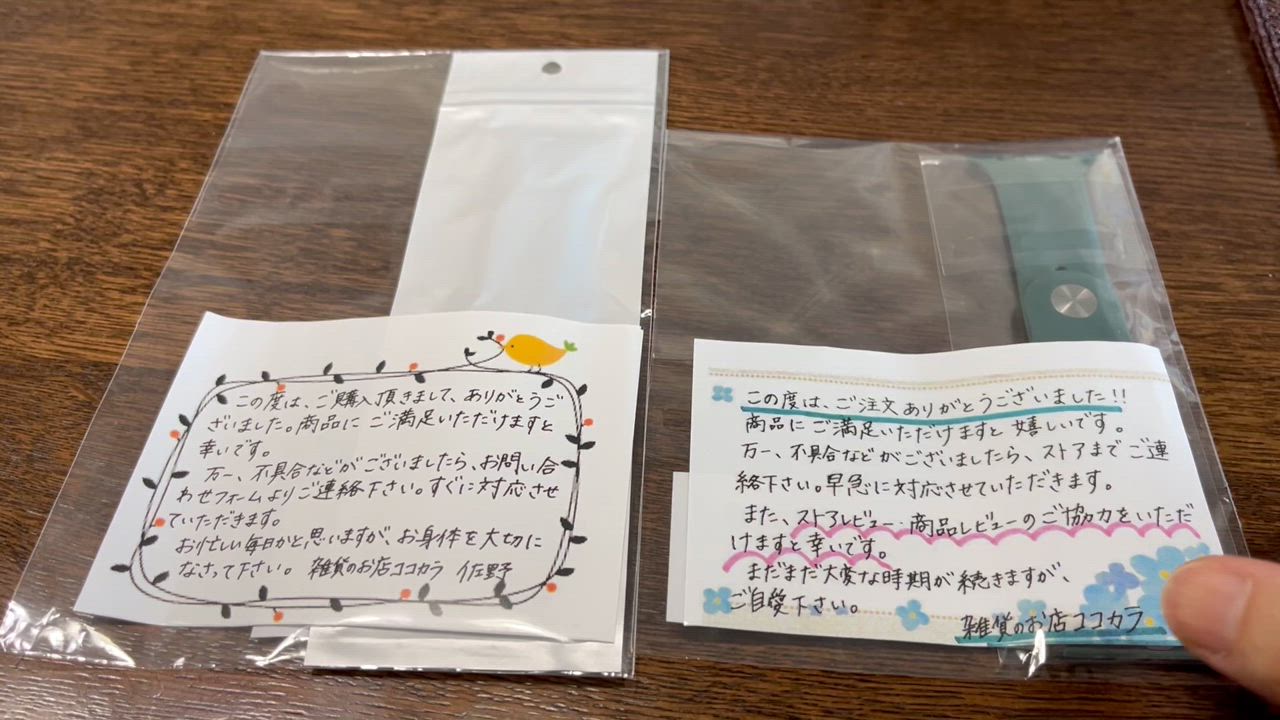 この度は、ご購入頂きまして、ありがとうご
ざいました。商品にご満足いただけますと
幸いです。
万一、不具合などがございましたら、お問い合
わせフォームよりご連絡下さい。すぐに対応させ
ていただきます。
お忙しい毎日かと思いますが、お身体を大切に
なさって下さい。 雑貨のお店ココカラ 佐野
この度は、ご注文ありがとうございました!!
商品にご満足いただけますと嬉しいです。
万一、不具合などがございましたら、ストアまでご連
絡下さい。早急に対応させていただきます。
また、ストアレビュー・商品レビューのご協力をいただ
けますと幸いです。
まだまだ大変な時期が続きますが、
ご自愛下さい。
雑貨のお店ココカラ